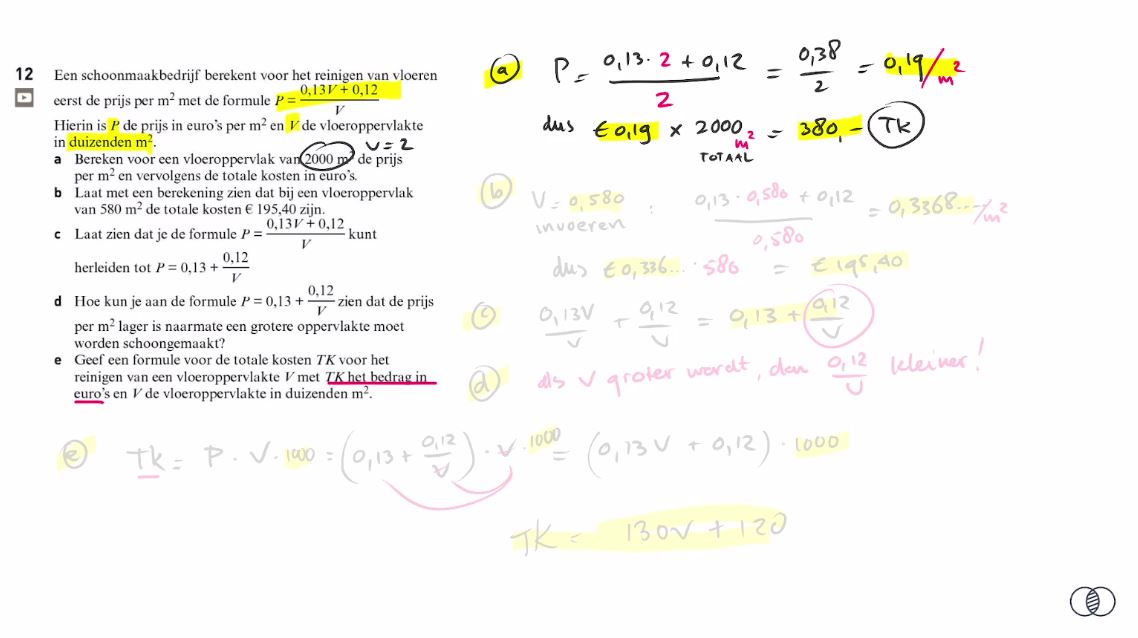 12 Een schoonmaakbedrijf berekent voor het reinigen van vloeren
eerst de prijs per m² met de formule P = (0,13V + 0,12)/V
Hierin is P de prijs in euro's per m² en V de vloeroppervlakte
in duizenden m².
V = 2
a Bereken voor een vloeroppervlak van 2000 m² de prijs
per m² en vervolgens de totale kosten in euro's.
b Laat met een berekening zien dat bij een vloeroppervlak
van 580 m² de totale kosten € 195,40 zijn.
c Laat zien dat je de formule P = (0,13V + 0,12)/V kunt
herleiden tot P = 0,13 + 0,12/V
d Hoe kun je aan de formule P = 0,13 + 0,12/V zien dat de prijs
per m² lager is naarmate een grotere oppervlakte moet
worden schoongemaakt?
e Geef een formule voor de totale kosten TK voor het
reinigen van een vloeroppervlakte V met TK het bedrag in
euro's en V de vloeroppervlakte in duizenden m².
a P = (0,13 · 2 + 0,12)/2 = 0,38/2 = 0,19/m²
dus € 0,19 × 2000 m² = 380,- TK
TOTAAL
b V = 0,580 : (0,13 · 0,580 + 0,12)/0,580 = 0,3368.../m²
invoeren
dus € 0,336... · 580 = € 195,40
c 0,13V/V + 0,12/V = 0,13 + 0,12/V
d als V groter wordt, dan 0,12/V kleiner!
e TK = P · V · 1000 = (0,13 + 0,12/V) · V · 1000 = (0,13V + 0,12) · 1000
TK = 130V + 120